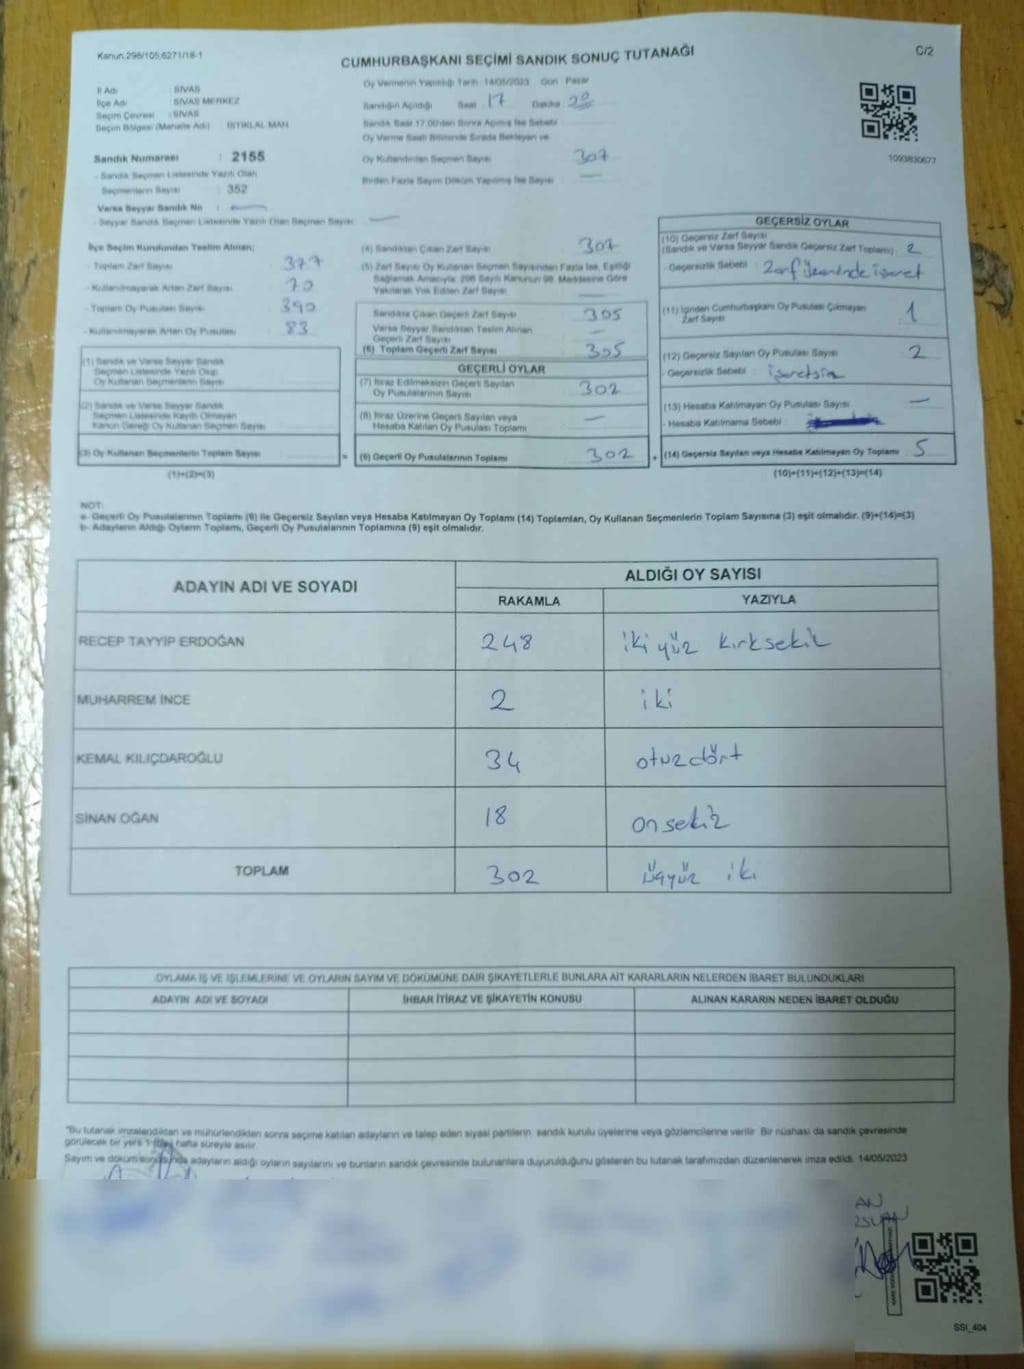 Kanun.298/105,6271/18-1
C/2
CUMHURBAŞKANI SEÇİMİ SANDIK SONUÇ TUTANAĞI
İl Adı : SİVAS
İlçe Adı : SİVAS MERKEZ
Seçim Çevresi : SİVAS
Seçim Bölgesi (Mahalle Adı) : İSTİKLAL MAH.
Sandık Numarası : 2155
- Sandık Seçmen Listesinde Yazılı Olan
Seçmenlerin Sayısı : 352
Varsa Seyyar Sandık No :
- Seyyar Sandık Seçmen Listesinde Yazılı Olan Seçmen Sayısı
Oy Vermenin Yapıldığı Tarih 14/05/2023 Gün Pazar
Sandığın Açıldığı Saat 17 Dakika 20
Sandık Saat 17.00'den Sonra Açılmış İse Sebebi
Oy Verme Saati Bitiminde Sırada Bekleyen ve
Oy Kullandırılan Seçmen Sayısı 307
Birden Fazla Sayım Döküm Yapılmış İse Sayısı —
1093830677
İlçe Seçim Kurulundan Teslim Alınan;
- Toplam Zarf Sayısı 377
- Kullanılmayarak Artan Zarf Sayısı 70
- Toplam Oy Pusulası Sayısı 390
- Kullanılmayarak Artan Oy Pusulası 83
(1) Sandık ve Varsa Seyyar Sandık
Seçmen Listesinde Yazılı Olup
Oy Kullanan Seçmenlerin Sayısı
(2) Sandık ve Varsa Seyyar Sandık
Seçmen Listesinde Kayıtlı Olmayan
Kanun Gereği Oy Kullanan Seçmenlerin Sayısı
(3) Oy Kullanan Seçmenlerin Toplam Sayısı =
(1)+(2)=(3)
(4) Sandıktan Çıkan Zarf Sayısı 307
(5) Zarf Sayısı Oy Kullanan Seçmen Sayısından Fazla İse, Eşitliği
Sağlamak Amacıyla; 298 Sayılı Kanunun 98. Maddesine Göre
Yakılarak Yok Edilen Zarf Sayısı —
Sandıkta Çıkan Geçerli Zarf Sayısı 305
Varsa Seyyar Sandıktan Teslim Alınan
Geçerli Zarf Sayısı —
(6) Toplam Geçerli Zarf Sayısı 305
GEÇERLİ OYLAR
(7) İtiraz Edilmeksizin Geçerli Sayılan
Oy Pusulalarının Sayısı 302
(8) İtiraz Üzerine Geçerli Sayılan veya
Hesaba Katılan Oy Pusulası Toplamı —
(9) Geçerli Oy Pusulalarının Toplamı 302 +
GEÇERSİZ OYLAR
(10) Geçersiz Zarf Sayısı
(Sandık ve Varsa Seyyar Sandık Geçersiz Zarf Toplamı) 2
- Geçersizlik Sebebi : Zarf üzerinde işaret
(11) İçinden Cumhurbaşkanı Oy Pusulası Çıkmayan
Zarf Sayısı 1
(12) Geçersiz Sayılan Oy Pusulası Sayısı 2
- Geçersizlik Sebebi : işaretsiz
(13) Hesaba Katılmayan Oy Pusulası Sayısı —
- Hesaba Katılmama Sebebi :
(14) Geçersiz Sayılan veya Hesaba Katılmayan Oy Toplamı 5
(10)+(11)+(12)+(13)=(14)
NOT:
a- Geçerli Oy Pusulalarının Toplamı (9) ile Geçersiz Sayılan veya Hesaba Katılmayan Oy Toplamı (14) Toplamları, Oy Kullanan Seçmenlerin Toplam Sayısına (3) eşit olmalıdır. (9)+(14)=(3)
b- Adayların Aldığı Oyların Toplamı, Geçerli Oy Pusulalarının Toplamına (9) eşit olmalıdır.
ADAYIN ADI VE SOYADI
ALDIĞI OY SAYISI
RAKAMLA YAZIYLA
RECEP TAYYİP ERDOĞAN 248 iki yüz kırksekiz
MUHARREM İNCE 2 iki
KEMAL KILIÇDAROĞLU 34 otuzdört
SİNAN OĞAN 18 onsekiz
TOPLAM 302 üçyüz iki
OYLAMA İŞ VE İŞLEMLERİNE VE OYLARIN SAYIM VE DÖKÜMÜNE DAİR ŞİKAYETLERLE BUNLARA AİT KARARLARIN NELERDEN İBARET BULUNDUKLARI
ADAYIN ADI VE SOYADI İHBAR İTİRAZ VE ŞİKAYETİN KONUSU ALINAN KARARIN NEDEN İBARET OLDUĞU
"Bu tutanak imzalandıktan ve mühürlendikten sonra seçime katılan adayların ve talep eden siyasi partilerin sandık kurulu üyelerine veya gözlemcilerine verilir. Bir nüshası da sandık çevresinde
görülecek bir yere 1 hafta süreyle asılır.
Sayım ve döküm sonucunda adayların aldığı oyların sayılarını ve bunların sandık çevresinde bulunanlara duyurulduğunu gösteren bu tutanak tarafımızdan düzenlenerek imza edildi. 14/05/2023
SSI_404